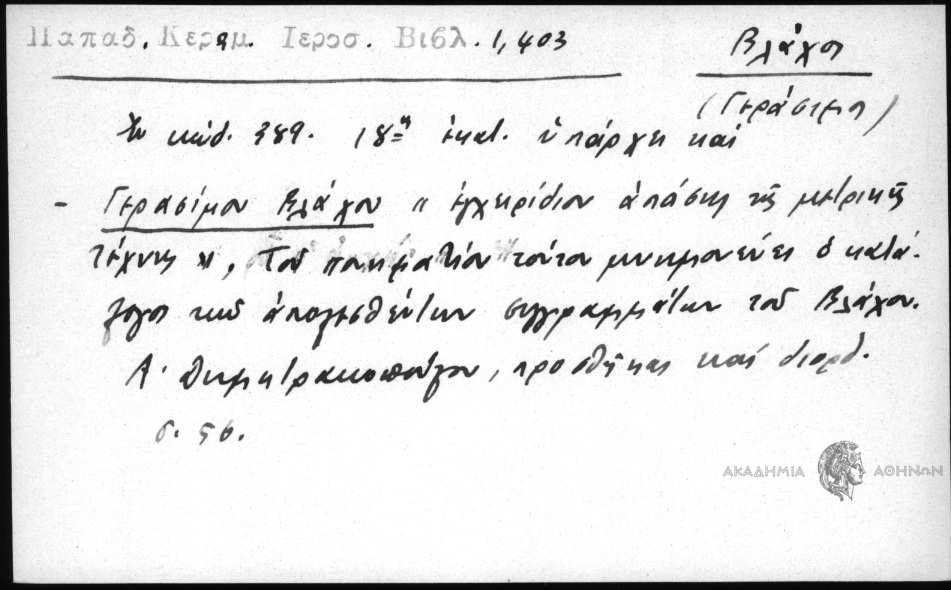 Παπαδ. Κεραμ. Ιεροσ. Βιβλ. 1,403
Βλάχος
(Γεράσιμος)
Ἐν κώδ. 389. 18ης ἑκατ. ὑπάρχει καὶ
- Γερασίμου Βλάχου "ἐγχειρίδιον ἁπάσης τῆς μετρικῆς
τέχνης", Τοῦ ποιηματίου τούτου μνημονεύει ὁ κατά-
λογος τῶν ἀπολεσθέντων συγγραμμάτων τοῦ Βλάχου.
Α. Δημητρακοπούλου, προσθῆκαι καὶ διορθ.
σ. 56.
ΑΚΑΔΗΜΙΑ ΑΘΗΝΩΝ